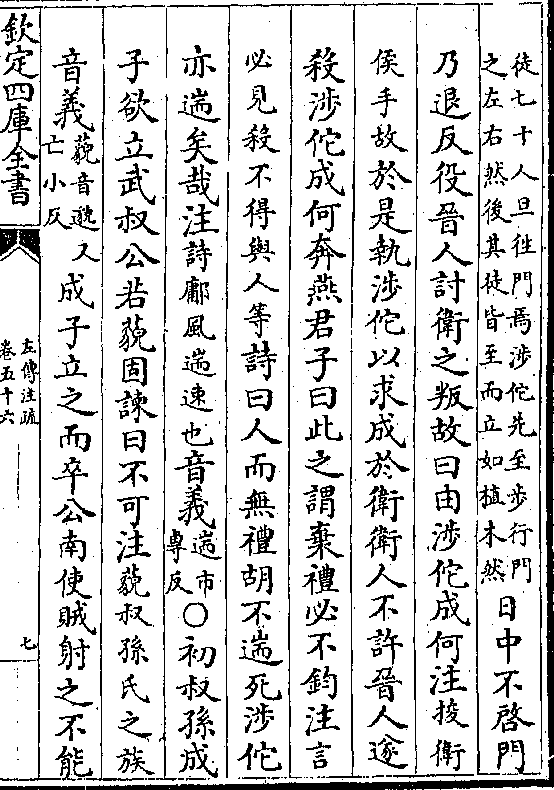 徒七十人旦徃門焉涉佗先至步行門
之左右然後其徒皆至而立如植木然
日中不啓門
乃退反役晉人討衛之叛故曰由涉佗成何注捘衛
侯手故於是執涉佗以求成於衛衛人不許晉人遂
殺涉佗成何奔燕君子曰此之謂棄禮必不鈞注言
必見殺不得與人等詩曰人而無禮胡不遄死涉佗
亦遄矣哉注詩鄘風遄速也音義遄市
專反
○初叔孫成
子欲立武叔公若藐固諫曰不可注藐叔孫氏之族
音義藐音邈又
亡小反
成子立之而卒公南使賊射之不能
欽定四庫全書
左傳注疏
卷五十六
七